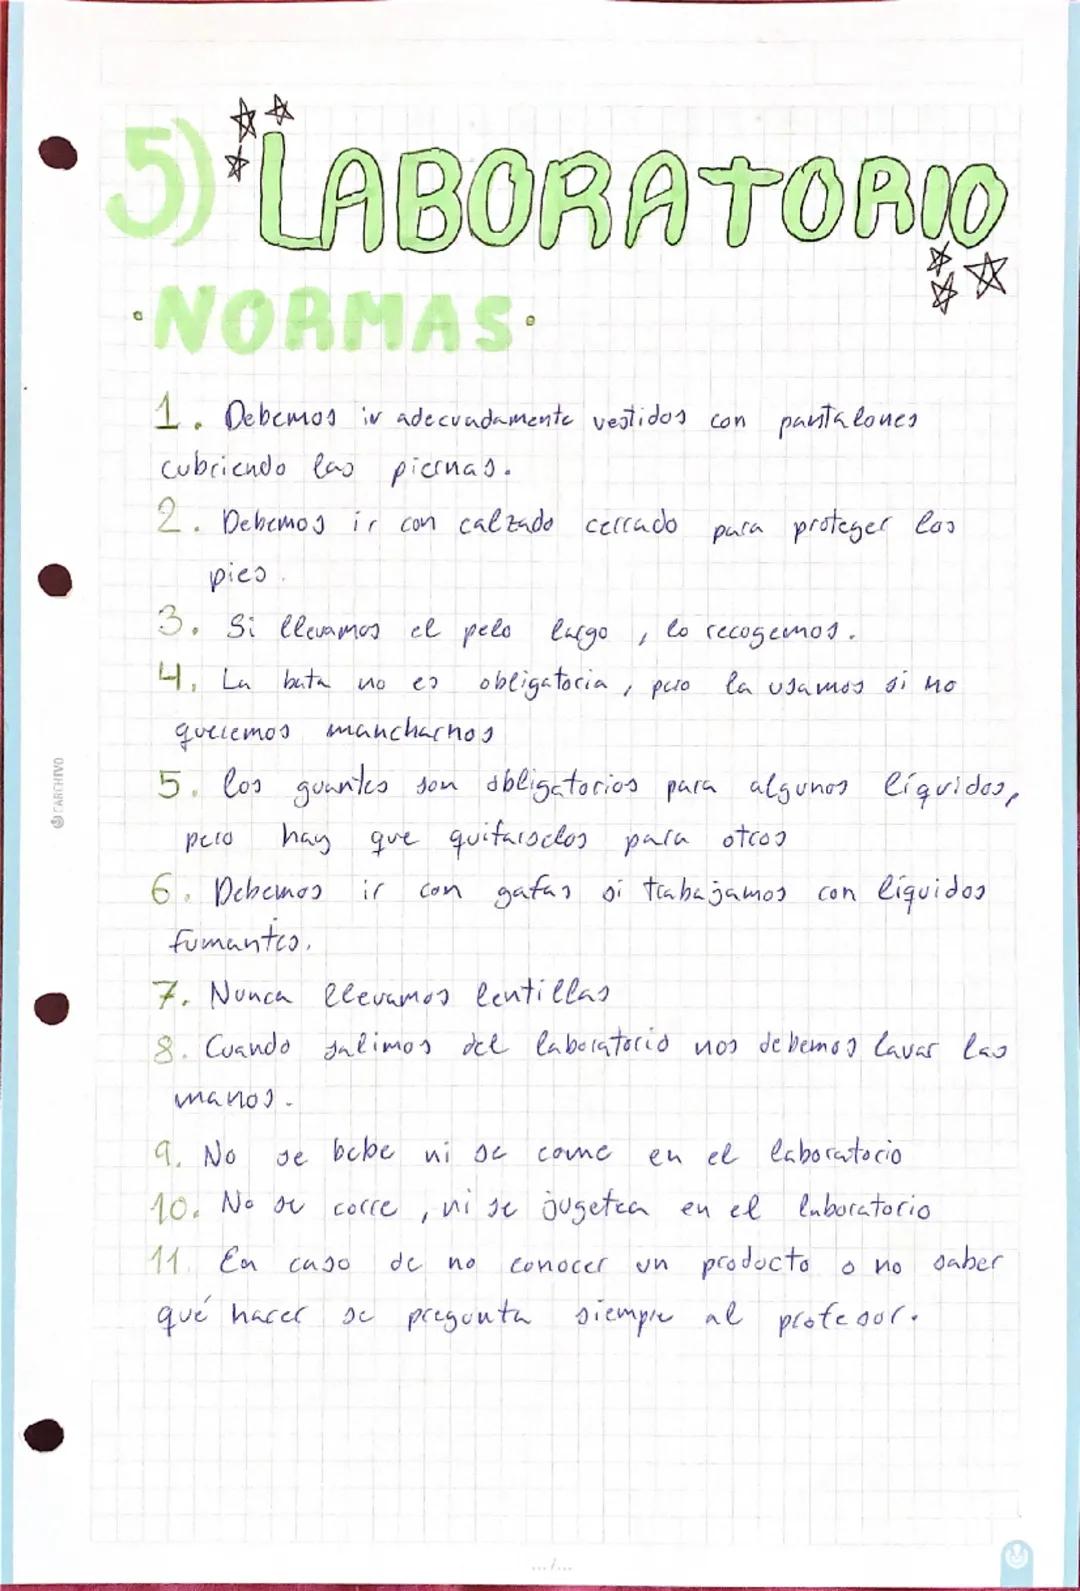 5) LABORATORIO
·NORMAS·
1. Debemos ir adecuadamente vestidos con pantalones
cubriendo las piernas.
2. Debemos ir con calzado cerrado para proteger los
pies.
3. Si llevamos el pelo largo, lo recogemos.
4. La bata no es obligatoria, pero la usamos si no
queremos mancharnos
5. los guantes son obligatorios para algunos líquidos,
pero hay que quitarselos para otros
6. Debemos ir con gafas si trabajamos con líquidos
fumantes.
7. Nunca llevamos lentillas
8. Cuando salimos del laboratorio nos debemos lavar las
manos.
9. No se bebe ni se come en el laboratorio
10. No se corre, ni se jugetea en el laboratorio
11. En caso de no conocer un producto o no saber
qué hacer se pregunta siempre al profesor.
CARCHIVO
.../...